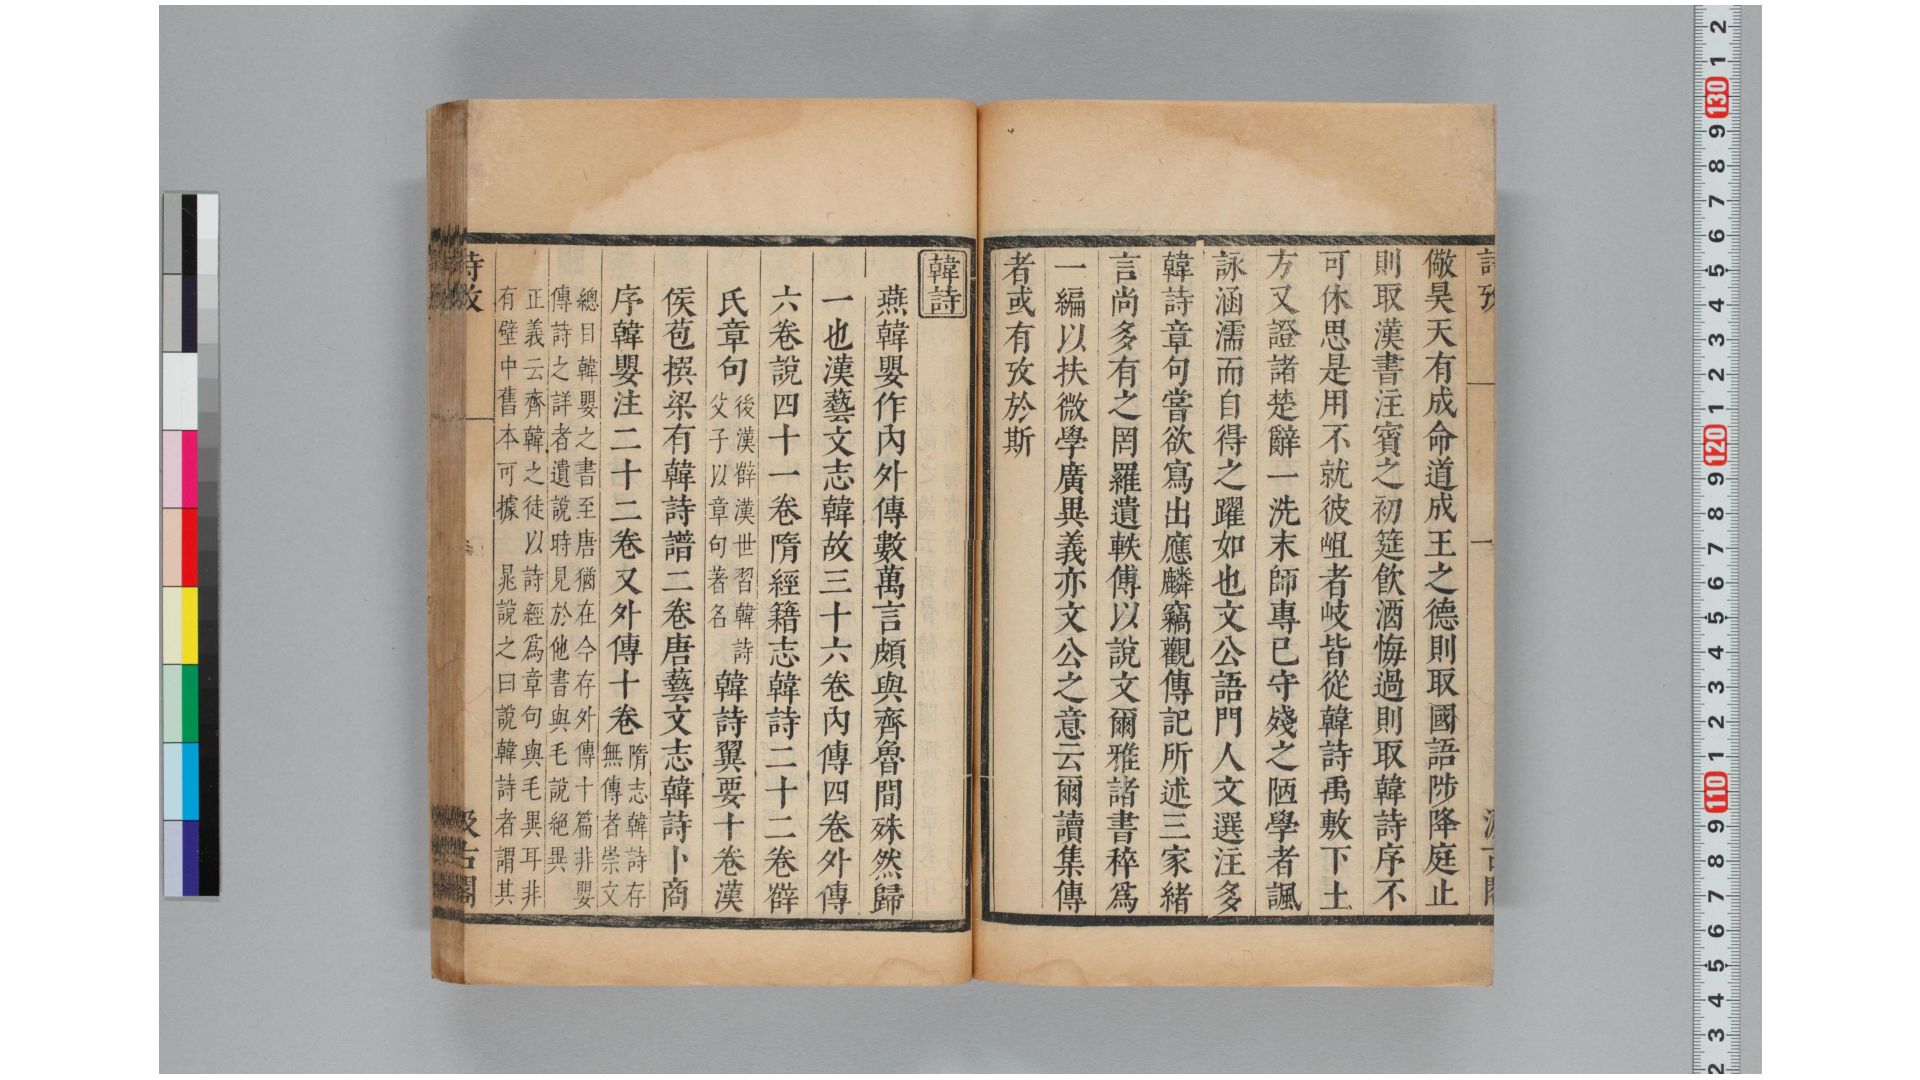 詩攷
一
儆昊天有成命道成王之德則取國語陟降庭止
則取漢書注賓之初筵飲酒悔過則取韓詩序不
可休思是用不就彼岨者岐皆從韓詩禹敷下土
方又證諸楚辭一洗末師專已守殘之陋學者諷
詠涵濡而自得之躍如也文公語門人文選注多
韓詩章句嘗欲寫出應麟竊觀傳記所述三家緒
言尚多有之罔羅遺軼傅以說文爾雅諸書稡爲
一編以扶微學廣異義亦文公之意云爾讀集傳
者或有攷於斯
韓詩
燕韓嬰作內外傳數萬言頗與齊魯間殊然歸
一也漢藝文志韓故三十六卷內傳四卷外傳
六卷說四十一卷隋經籍志韓詩二十二卷薛
氏章句
後漢薛漢世習韓詩
父子以章句著名
韓詩翼要十卷漢
侯苞撰梁有韓詩譜二卷唐藝文志韓詩卜商
序韓嬰注二十二卷又外傳十卷
隋志韓詩存
無傳者崇文
總目韓嬰之書至唐猶在今存外傳十篇非嬰
傳詩之詳者遺說時見於他書與毛說絕異
正義云齊韓之徒以詩經爲章句與毛異耳非
有壁中舊本可據 晁說之曰說韓詩者謂其
詩攷
汲古閣
2
1
130
9
8
7
6
5
4
3
2
1
120
9
8
7
6
5
4
3
2
1
110
9
8
7
6
5
4
3
2